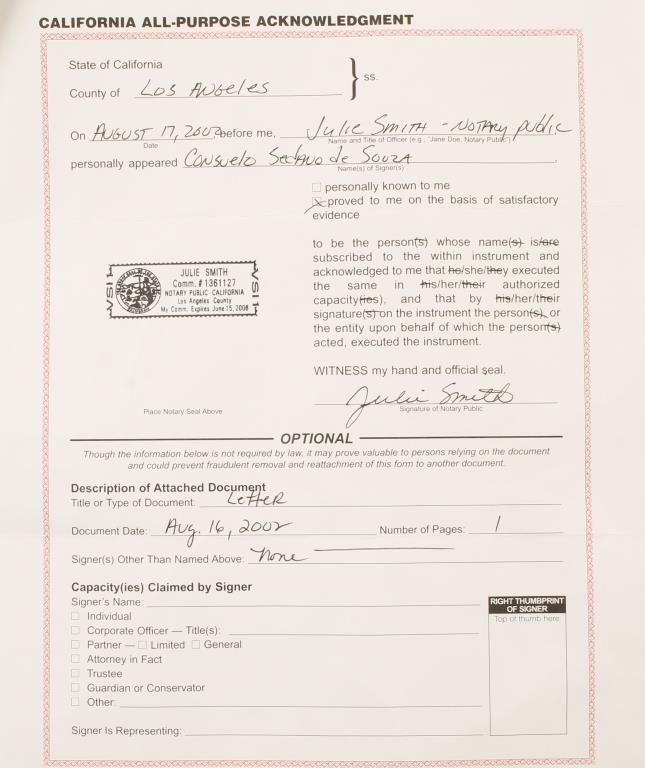 CALIFORNIA ALL-PURPOSE ACKNOWLEDGMENT
State of California
County of Los Angeles
} ss.
On August 17, 2002 before me, Julie Smith - Notary Public
Date
Name and Title of Officer (e.g., "Jane Doe, Notary Public")
personally appeared Consuelo Sedano de Souza,
Name(s) of Signer(s)
☐ personally known to me
☒ proved to me on the basis of satisfactory
evidence
to be the person(s) whose name(s) is/are
subscribed to the within instrument and
acknowledged to me that he/she/they executed
the same in his/her/their authorized
capacity(ies), and that by his/her/their
signature(s) on the instrument the person(s), or
the entity upon behalf of which the person(s)
acted, executed the instrument.
JULIE SMITH
Comm. # 1361127
NOTARY PUBLIC-CALIFORNIA
Los Angeles County
My Comm. Expires June 15, 2006
VSI1
VSI1
WITNESS my hand and official seal.
Julie Smith
Place Notary Seal Above
Signature of Notary Public
OPTIONAL
Though the information below is not required by law, it may prove valuable to persons relying on the document
and could prevent fraudulent removal and reattachment of this form to another document.
Description of Attached Document
Title or Type of Document: Letter
Document Date: Aug. 16, 2002 Number of Pages: 1
Signer(s) Other Than Named Above: None
Capacity(ies) Claimed by Signer
Signer's Name:
☐ Individual
☐ Corporate Officer — Title(s):
☐ Partner — ☐ Limited ☐ General
☐ Attorney in Fact
☐ Trustee
☐ Guardian or Conservator
☐ Other:
Signer Is Representing:
RIGHT THUMBPRINT
OF SIGNER
Top of thumb here